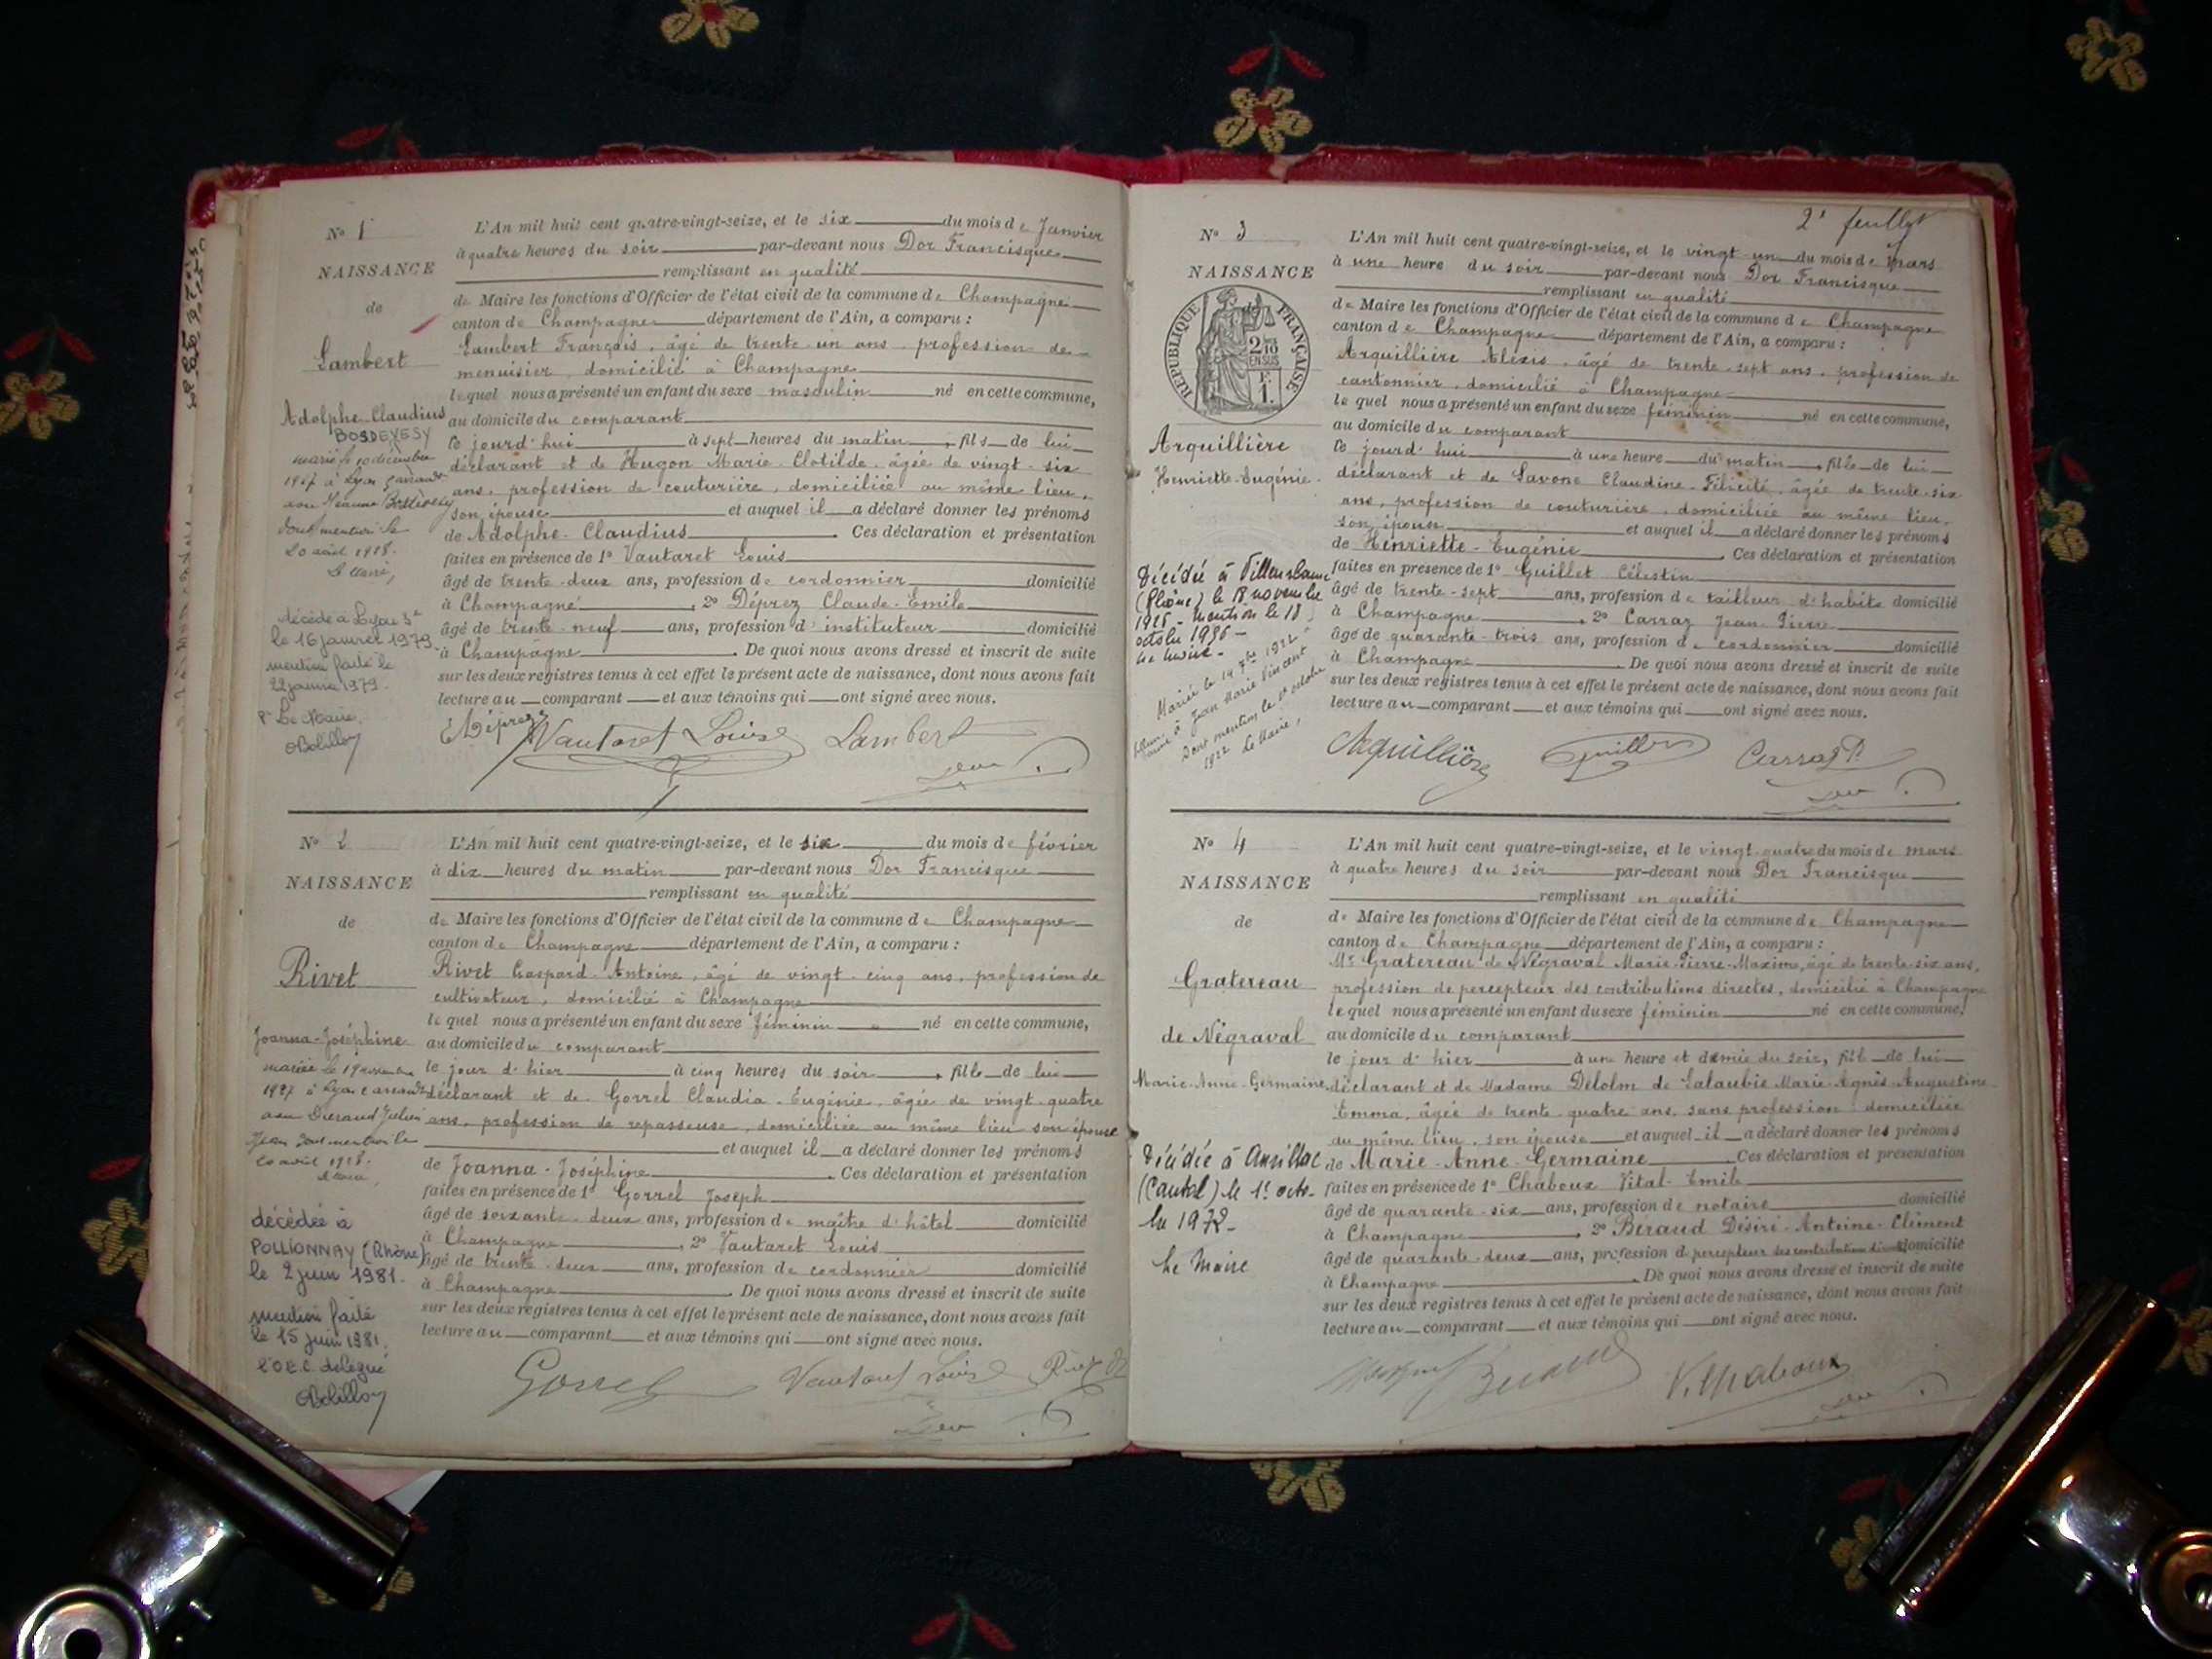 N° 1
NAISSANCE
de
Lambert
Adolphe-Claudius
BOSDEVESY
marié le 10 décembre
1927 à Lyon
avec Jeanne
dont mention le
20 avril 1928.
Le Maire,
décédé à Lyon 3e
le 16 janvier 1979.
mention faite le
22 janvier 1979.
Pr Le Maire,
L'An mil huit cent quatre-vingt-seize, et le six du mois de Janvier
à quatre heures du soir par-devant nous Dor Francisque
remplissant en qualité
de Maire les fonctions d'Officier de l'état civil de la commune de Champagne
canton de Champagne département de l'Ain, a comparu :
Lambert François, âgé de trente-un ans, profession de
menuisier, domicilié à Champagne
lequel nous a présenté un enfant du sexe masculin né en cette commune,
au domicile du comparant
ce jourd'hui à sept heures du matin, fils de lui
déclarant et de Hugon Marie-Clotilde, âgée de vingt-six
ans, profession de couturière, domiciliée au même lieu,
son épouse et auquel il a déclaré donner les prénoms
de Adolphe-Claudius. Ces déclaration et présentation
faites en présence de 1° Vautaret Louis
âgé de trente-deux ans, profession de cordonnier domicilié
à Champagne, 2° Déprez Claude-Emile
âgé de trente-neuf ans, profession d'instituteur domicilié
à Champagne. De quoi nous avons dressé et inscrit de suite
sur les deux registres tenus à cet effet le présent acte de naissance, dont nous avons fait
lecture au comparant et aux témoins qui ont signé avec nous.
Déprez Vautaret Louis Lambert
Dor
N° 2
NAISSANCE
de
Rivet
Joanna-Joséphine
mariée le 19 novembre
1927 à Lyon
avec Durand Julien
Jean dont mention le
20 avril 1928.
décédée à
POLLIONNAY (Rhône)
le 2 juin 1981.
mention faite
le 15 juin 1981.
l'O.E.C. délégué
L'An mil huit cent quatre-vingt-seize, et le six du mois de février
à dix heures du matin par-devant nous Dor Francisque
remplissant en qualité
de Maire les fonctions d'Officier de l'état civil de la commune de Champagne
canton de Champagne département de l'Ain, a comparu :
Rivet Gaspard-Antoine, âgé de vingt-cinq ans, profession de
cultivateur, domicilié à Champagne
lequel nous a présenté un enfant du sexe féminin né en cette commune,
au domicile du comparant
le jour d'hier à cinq heures du soir, fille de lui
déclarant et de Gorrel Claudia-Eugénie, âgée de vingt-quatre
ans, profession de repasseuse, domiciliée au même lieu son épouse
et auquel il a déclaré donner les prénoms
de Joanna-Joséphine. Ces déclaration et présentation
faites en présence de 1° Gorrel Joseph
âgé de soixante-deux ans, profession de maître d'hôtel domicilié
à Champagne, 2° Vautaret Louis
âgé de trente-deux ans, profession de cordonnier domicilié
à Champagne. De quoi nous avons dressé et inscrit de suite
sur les deux registres tenus à cet effet le présent acte de naissance, dont nous avons fait
lecture au comparant et aux témoins qui ont signé avec nous.
Gorrel Vautaret Louis Rivet
Dor
2e feuillet
N° 3
NAISSANCE
REPUBLIQUE FRANÇAISE
2/10 EN SUS
F.
1.
Arquillière
Henriette-Eugénie.
Décédée à Villeurbanne
(Rhône) le 18 novembre
Mention le 18
octobre
Le Maire
Mariée le 14 7bre 1922
à Jean Marie Vincent
Dont mention le 1er octobre
1922 Le Maire,
L'An mil huit cent quatre-vingt-seize, et le vingt-un du mois de mars
à une heure du soir par-devant nous Dor Francisque
remplissant en qualité
de Maire les fonctions d'Officier de l'état civil de la commune de Champagne
canton de Champagne département de l'Ain, a comparu :
Arquillière Alexis, âgé de trente-sept ans, profession de
cantonnier, domicilié à Champagne
lequel nous a présenté un enfant du sexe féminin né en cette commune,
au domicile du comparant
ce jourd'hui à une heure du matin, fille de lui
déclarant et de Savone Claudine-Félicité, âgée de trente-six
ans, profession de couturière, domiciliée au même lieu,
son épouse et auquel il a déclaré donner les prénoms
de Henriette-Eugénie. Ces déclaration et présentation
faites en présence de 1° Guillet Célestin
âgé de trente-sept ans, profession de tailleur d'habits domicilié
à Champagne, 2° Carraz Jean-Pierre
âgé de quarante-trois ans, profession de cordonnier domicilié
à Champagne. De quoi nous avons dressé et inscrit de suite
sur les deux registres tenus à cet effet le présent acte de naissance, dont nous avons fait
lecture au comparant et aux témoins qui ont signé avec nous.
Arquillière Guillet Carraz P.
Dor
N° 4
NAISSANCE
de
Gratereau
de Négraval
Marie-Anne-Germaine
Décédée à Aurillac
(Cantal) le 1er octo-
bre 1972-
Le Maire
L'An mil huit cent quatre-vingt-seize, et le vingt-quatre du mois de mars
à quatre heures du soir par-devant nous Dor Francisque
remplissant en qualité
de Maire les fonctions d'Officier de l'état civil de la commune de Champagne
canton de Champagne département de l'Ain, a comparu :
Mr Gratereau de Négraval Marie-Pierre-Maxime, âgé de trente-six ans,
profession de percepteur des contributions directes, domicilié à Champagne
lequel nous a présenté un enfant du sexe féminin né en cette commune,
au domicile du comparant
le jour d'hier à une heure et demie du soir, fille de lui
déclarant et de Madame Delolm de Lalaubie Marie-Agnès-Augustine
Emma, âgée de trente-quatre ans, sans profession, domiciliée
au même lieu, son épouse et auquel il a déclaré donner les prénoms
de Marie-Anne-Germaine. Ces déclaration et présentation
faites en présence de 1° Chaboux Vital-Emile
âgé de quarante-six ans, profession de notaire domicilié
à Champagne, 2° Beraud Désiré-Antoine-Clément
âgé de quarante-deux ans, profession de percepteur des contributions directes domicilié
à Champagne. De quoi nous avons dressé et inscrit de suite
sur les deux registres tenus à cet effet le présent acte de naissance, dont nous avons fait
lecture au comparant et aux témoins qui ont signé avec nous.
Beraud V. Chaboux
Dor